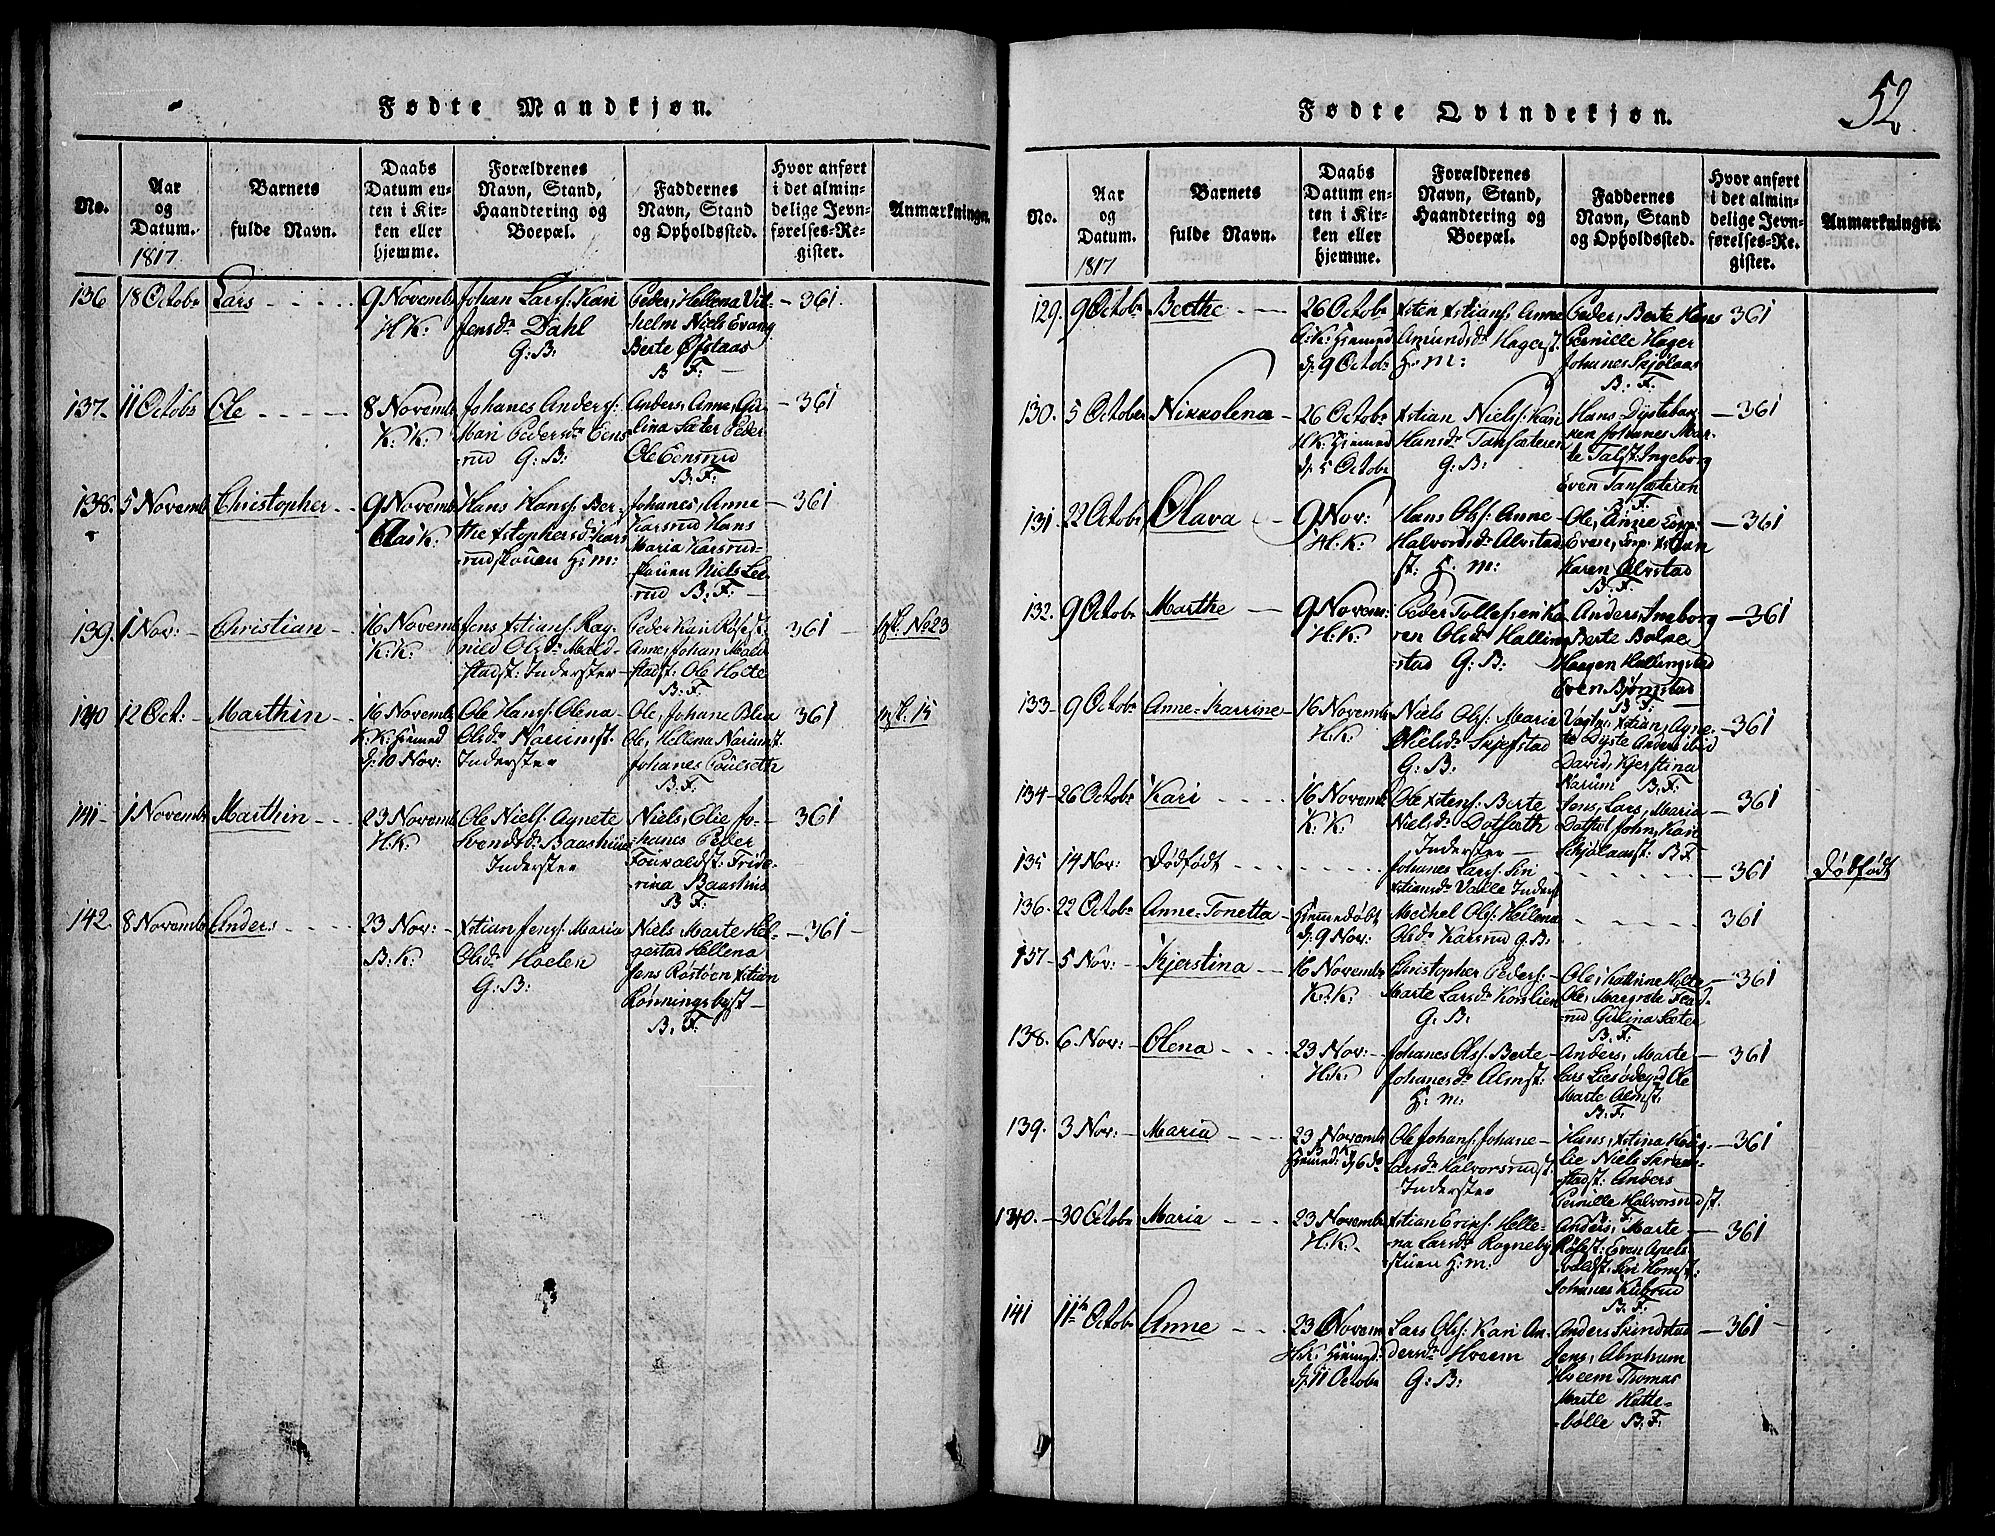 Fødte Mandkjøn.
No.
Aar
og
Datum.
1817
Barnets
fulde Navn.
Daabs
Datum en-
ten i Kir-
ken eller
hjemme.
Forældrenes
Navn, Stand,
Haandtering og
Boepæl.
Faddernes
Navn, Stand
og Opholdssted.
Hvor anført
i det almin-
delige Jevn-
førelses-Re-
gister.
Anmærkninger.
136 18 Octobr Lars
9 Novembr
H.K:
Johan Larss: Kari
Jensdr Dahl
G: B:
Peder, Hellena Vil-
helm Niels Evang
Berte Øfstaas
B F:
361.
137. 11 Octobr Ole
8 Novembr
K: K:
Johanes Anderss:
Mari Pedersdr Eens
-rud G: B:
Anders, Anne, Gu-
lina Sæter Peder
Ole Eensrud
B: F:
361
138. 5 Novembr Christopher
9 Novemb
Aas K:
Hans Hanss: Ber-
the Xstophersdr Kars
rudskouen H: m:
Johanes, Anne
Karsrud Hans
Maria Karsrud-
skouen Niels Lee-
rud B: F:
361
139. 1 Nov: Christian
16 Novemb
K: K:
Jens Xstians: Rag-
nied Olsdr Mald-
stadst: Inderster
Peder Kari Røsest
Anne, Johan Mald
stadst: Ole Holte
B: F.
361
No 23
140 12 Oct: Marthin
16 Novemb
K: K: Hiemed
d: 10 Nov:
Ole Hanss: Olena
Olsdr Narumst:
Inderster
Ole, Johane Blia
Ole, Hellena Narumst.
Johanes Pouelseth
B. F.
361
15
141 1 Novembr Marthin
23 Novemb
H.K:
Ole Niels: Agnete
Svendsdr Baashuus
Inderster
Niels, Elie Jo-
hanes Peder
Fouvaldst: Fride-
rina Baashus
B F:
361
142. 8 Novembr Anders
23 Nov:
B. K:
Xstian Jens: Maria
Olsdr Hoelen
G: B:
Niels Marte Hel-
gestad Hellena
Jens Røstøen Xstian
Rønningsbyst
B. F.
361
52.
Fødte Qvindekjøn.
No.
Aar
og
Datum.
1817
Barnets
fulde Navn.
Daabs
Datum en-
ten i Kir-
ken eller
hjemme.
Forældrenes
Navn, Stand,
Haandtering og
Boepæl.
Faddernes
Navn, Stand
og Opholdssted.
Hvor anført
i det almin-
delige Jevn-
førelses-Re-
gister.
Anmærkninger.
129. 9 Octobr Berthe
26 Octobr
K: Hiemed
d: 9 Octobr
Xsten Xstians: Anne
Amundsdr Hagerst.
H: m:
Peder, Berte Hans
Pernille Hager
Johanes Skjølaas
B: F.
361
130. 5 Octobr Nikkolena
26 Octobr
H: K: Hiemed
d: 5 Octobr
Xstian Niels: Kari
Hansdr Tansæteren
G: B:
Hans Dystebak-
ken Johanes Mar-
te Talst: Ingeborg
Even Tansæteren
B: F.
361
131. 22 Octobr Olava
9 Nov:
H: K:
Hans Ols: Anne
Halvorsdr Alvstad
st. H: m:
Ole, Anne Corp.
Even, Corp. Xstian
Karen Alvstad
B: F:
361
132. 9 Octobr Marthe
9 Novem:
H: K:
Peder Tollefsen Ka
ren Olsdr Halling
stad G: B:
Anders, Ingeborg
Berte Bolne
Haagen Hallingstad
Even Bjørnstad
B F:
361
133 9 Octobr Anne Karrine
16 Novembr
H: K:
Niels Ols: Maria
Nielsdr Skjefstad
G: B:
Vagtm: Xstian, Agne-
te Dyste Anders ibid
David, Kjerstina
Narum B. F:
361
134 26 Octobr Kari
16 Novemb
K: K:
Ole Xstens: Berte
Nielsdr Dotseth
Inderster
Jens, Lars, Maria
Dotset John, Kari
Schjølaasst: B F.
361
135 14 Nov: Dødfødt
Johanes Lars: Siri
Xstiansdr Valle Inderst
361
Dødfødt
136. 22 Octobr Anne Tonetta
Hiemedøbt
d. 9 Nov:
Meikel Ols: Hellena
Olsdr Karsrud G: B:
361
137 5 Nov: Kjerstina
16 Novembr
K: K:
Christopher Peders:
Marte Larsdr Korslien
G: B:
Ole, Kattrine Holte
Ole, Margrete Feld-
rud Gulina Sæter
B: F:
361
138. 6 Nov: Olena
23 Nov:
H.K:
Johanes Ols: Berte
Johanesdr Almst:
H: m:
Anders, Marte
Lars Liesødegrd Ole
Marte Almst.
B: F:
361
139. 3 Nov: Maria
23 Novemb
Hiemed: d. 6 do
Ole Johans: Johane
Larsdr Halvorsrudst.
Inderster
Hans, Xstina Haug-
lie Niels Skram-
stadst: Anders
Pernille Halvorsrudst.
361
140. 30 Octobr Maria
23 Novembr
H: K:
Xstian Erics: Helle-
na Larsdr Rognebÿ
stuen H: m:
Anders, Marte
Røsest: Even Apels
voldst: Siri Homst:
Johanes Kubrud
B. F:
361
141 11te Octobr Anne
23 Novem
H: K: Hiemed:
d: 11 Octobr
Lars Ols: Kari An-
dersdr Hveem
G: B:
Anders Skindstad
Jens, Abraham
Hveem Thomas
Marte Hatte-
bølle B: F:
361